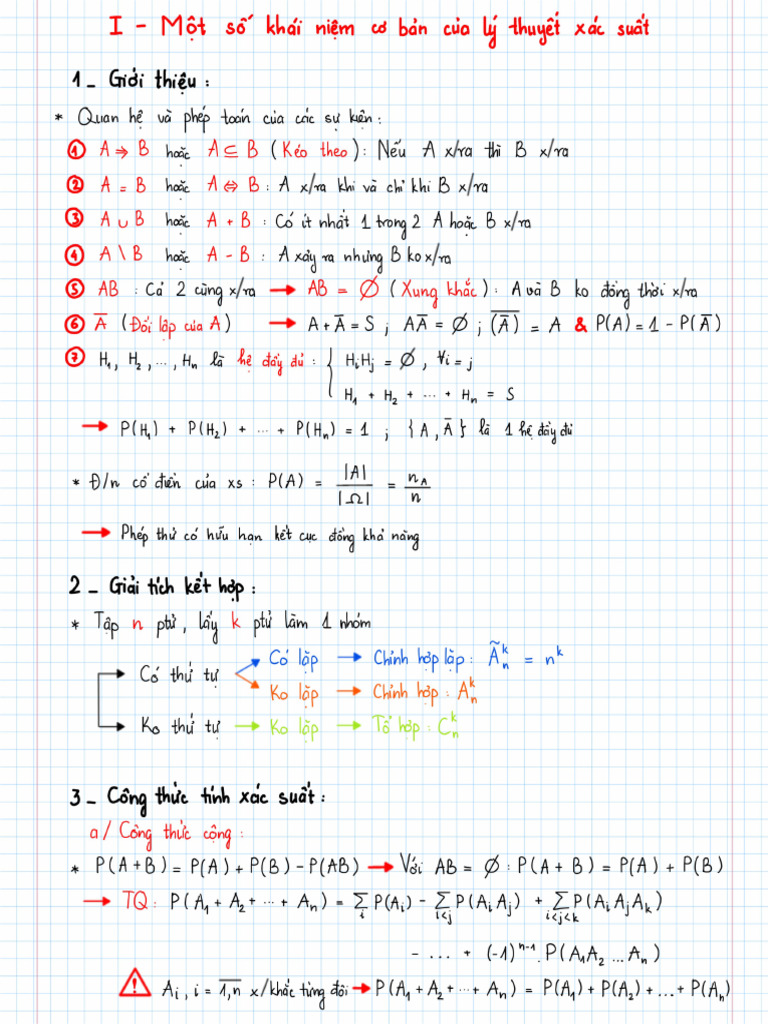 I - Một số khái niệm cơ bản của lý thuyết xác suất
1 - Giới thiệu :
* Quan hệ và phép toán của các sự kiện :
① A ⇒ B hoặc A ⊆ B ( Kéo theo ) : Nếu A x/ra thì B x/ra
② A = B hoặc A ⇔ B : A x/ra khi và chỉ khi B x/ra
③ A ∪ B hoặc A + B : Có ít nhất 1 trong 2 A hoặc B x/ra
④ A \ B hoặc A - B : A xảy ra nhưng B ko x/ra
⑤ AB : Cả 2 cùng x/ra → AB = ∅ ( Xung khắc ) : A và B ko đồng thời x/ra
⑥ A̅ (Đối lập của A) → A + A̅ = S ; AA̅ = ∅ ; \overline{(A̅)} = A & P(A) = 1 - P(A̅)
⑦ H₁, H₂, ..., Hₙ là hệ đầy đủ : { HᵢHⱼ = ∅, ∀i = j
H₁ + H₂ + ... + Hₙ = S
→ P(H₁) + P(H₂) + ... + P(Hₙ) = 1 ; {A, A̅} là 1 hệ đầy đủ
* Đ/n cổ điển của xs : P(A) = |A| / |Ω| = n_A / n
→ Phép thử có hữu hạn kết cục đồng khả năng
2 - Giải tích kết hợp :
* Tập n ptử, lấy k ptử làm 1 nhóm
Có lặp → Chỉnh hợp lặp : Ã_n^k = n^k
→ Có thứ tự
Ko lặp → Chỉnh hợp : A_n^k
→ Ko thứ tự → Ko lặp → Tổ hợp : C_n^k
3 - Công thức tính xác suất :
a/ Công thức cộng :
* P(A + B) = P(A) + P(B) - P(AB) → Với AB = ∅ : P(A + B) = P(A) + P(B)
→ TQ : P(A₁ + A₂ + ... + Aₙ) = ∑_i P(Aᵢ) - ∑_{i<j} P(AᵢAⱼ) + ∑_{i<j<k} P(AᵢAⱼAₖ)
- ... + (-1)^{n-1} . P(A₁A₂ ... Aₙ)
⚠ Aᵢ, i = \overline{1,n} x/khắc từng đôi → P(A₁ + A₂ + ... + Aₙ) = P(A₁) + P(A₂) + ... + P(Aₙ)